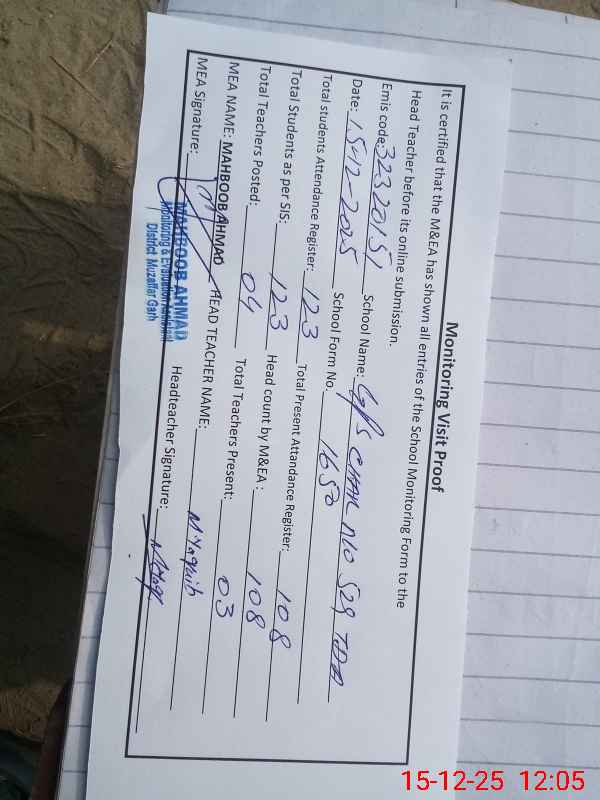 Monitoring Visit Proof
It is certified that the M&EA has shown all entries of the School Monitoring Form to the
Head Teacher before its online submission.
Emis code: 32320151 School Name: GPS CHAK NO 529 TDA
Date: 15-12-2025 School Form No. 1650
Total students Attendance Register: 123 Total Present Attandance Register: 108
Total Students as per SIS: 123 Head count by M&EA : 108
Total Teachers Posted: 04 Total Teachers Present: 03
MEA NAME: MAHBOOB AHMAD HEAD TEACHER NAME: M Yaqub
MEA Signature: Headteacher Signature:
MAHBOOB AHMAD
Monitoring & Evaluation Assistant
District Muzaffar Garh
15-12-25 12:05